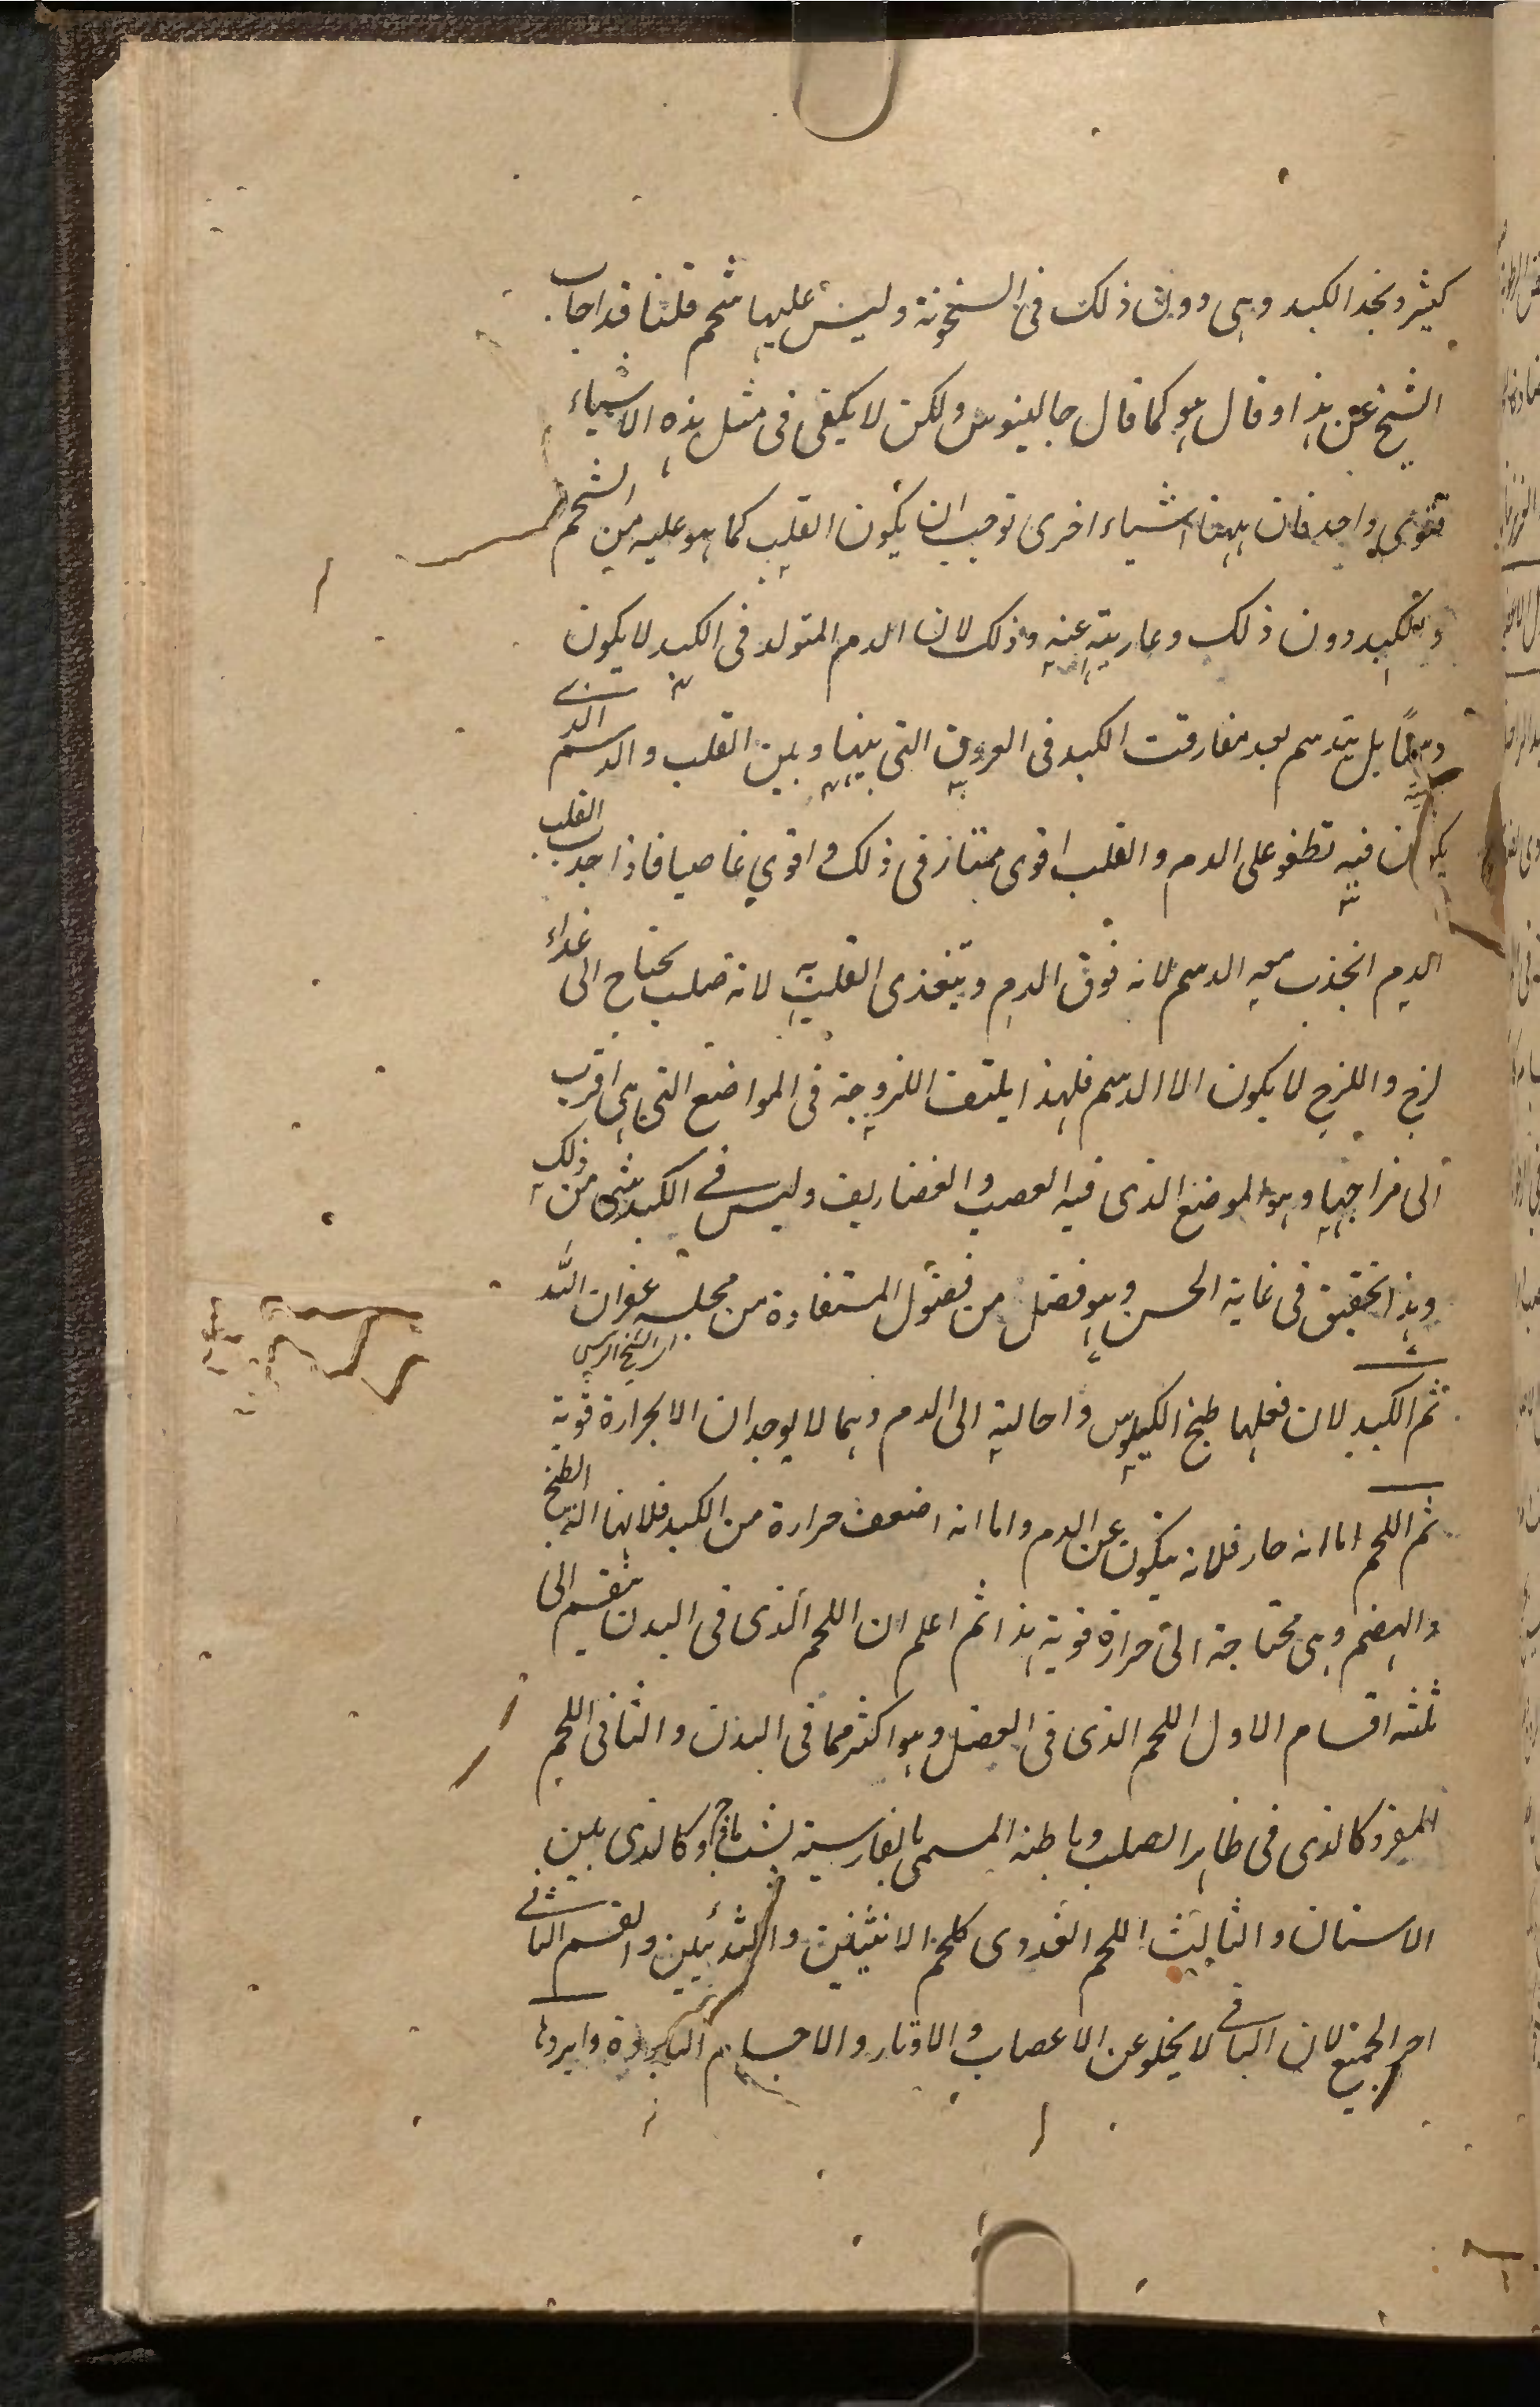 كثير ونجد الكبد وهى دون ذلك فى السخونة وليس عليها شحم قلنا قد اجاب
الشيخ عن هذا وقال هو كما قال جالينوس ولكن لا يكفى فى مثل هذه الاشياء
قوى واحد فان ههنا اشياء اخرى توجب ان يكون القلب كما هو عليه من الشحم
والكبد دون ذلك وعارية عنه وذلك لان الدم المتولد فى الكبد لا يكون
دسمًا بل يتدسم بعد مفارقت الكبد فى العروق التى بينها وبين القلب والدسم الذى
يكون فيه تطفو على الدم والقلب اقوى ممتاز فى ذلك و اقوي غاصيا فاذا جذب القلب
الدم انجذب معه الدسم لانه فوق الدم ويتغذى القلب لانه صلب يحتاج الى غذاء
لزج واللزج لا يكون الا الدسم فلهذا يلتف اللزوجة فى المواضع التى هى اقرب
الى مزاجها وهو الموضع الذى فيه العصب والغضاريف وليس فى الكبد شئ من ذلك
وهذا تحقيق فى غاية الحسن وهو فضل من فضول المستفادة من مجلسه عفوان الله
اى الشيخ الرئيس
ثم الكبد لان فعلها طبخ الكيلوس واحالته الى الدم وهما لا يوجدان الا بحرارة قوية
ثم اللحم اما انه حار فلانه يتكون عن الدم واما انه اضعف حرارة من الكبد فلانها آلة الطبخ
والهضم وهى محتاجة الى حرارة قوية هذا ثم اعلم ان اللحم الذى فى البدن ينقسم الى
ثلثه اقسام الاول اللحم الذى فى العضل وهو اكثر مما فى البدن والثانى اللحم
المفرد كالذى فى ظاهر الصلب وباطنه المسمى بالفارسية پشت مازه وكالذى بين
الاسنان والثالث اللحم الغددى كلحم الانثيين والثديين والقسم الثانى
احر الجميع لان الباقى لا يخلو عن الاعصاب والاوتار والاجسام الباردة وابردها